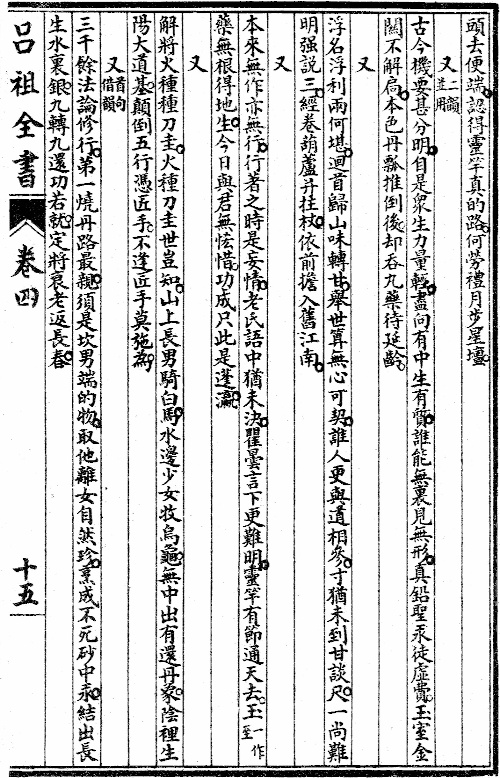 頭去便端認得靈竿真的路何勞禮月步星壇
又二韻並用
古今機要甚分明自是衆生力量輕盡向有中生有質誰能無裏見無形真鉛聖汞徒虛費玉室金
關不解扃本色丹瓢推倒後却吞九藥待延齡
又
浮名浮利兩何堪迴首歸山味轉甘舉世算無心可契誰人更與道相參寸猶未到甘談尺一尚難
明强説三經卷葫蘆并拄杖依前擔入舊江南
又
本來無作亦無行行著之時是妄情老氏語中猶未決瞿曇言下更難明靈竿有節通天去玉一作至
藥無根得地生今日與君無恡惜功成只此是蓬瀛
又
解將火種種刀圭火種刀圭世豈知山上長男騎白馬水邊少女牧烏龜無中出有還丹象陰裡生
陽大道基顛倒五行憑匠手不逢匠手莫施為
又首句借韻
三千餘法論修行第一燒丹路最親須是坎男端的物取他離女自然珍烹成不死砂中汞結出長
生水裏銀九轉九還功若就定將衰老返長春
呂祖全書
卷四
十五